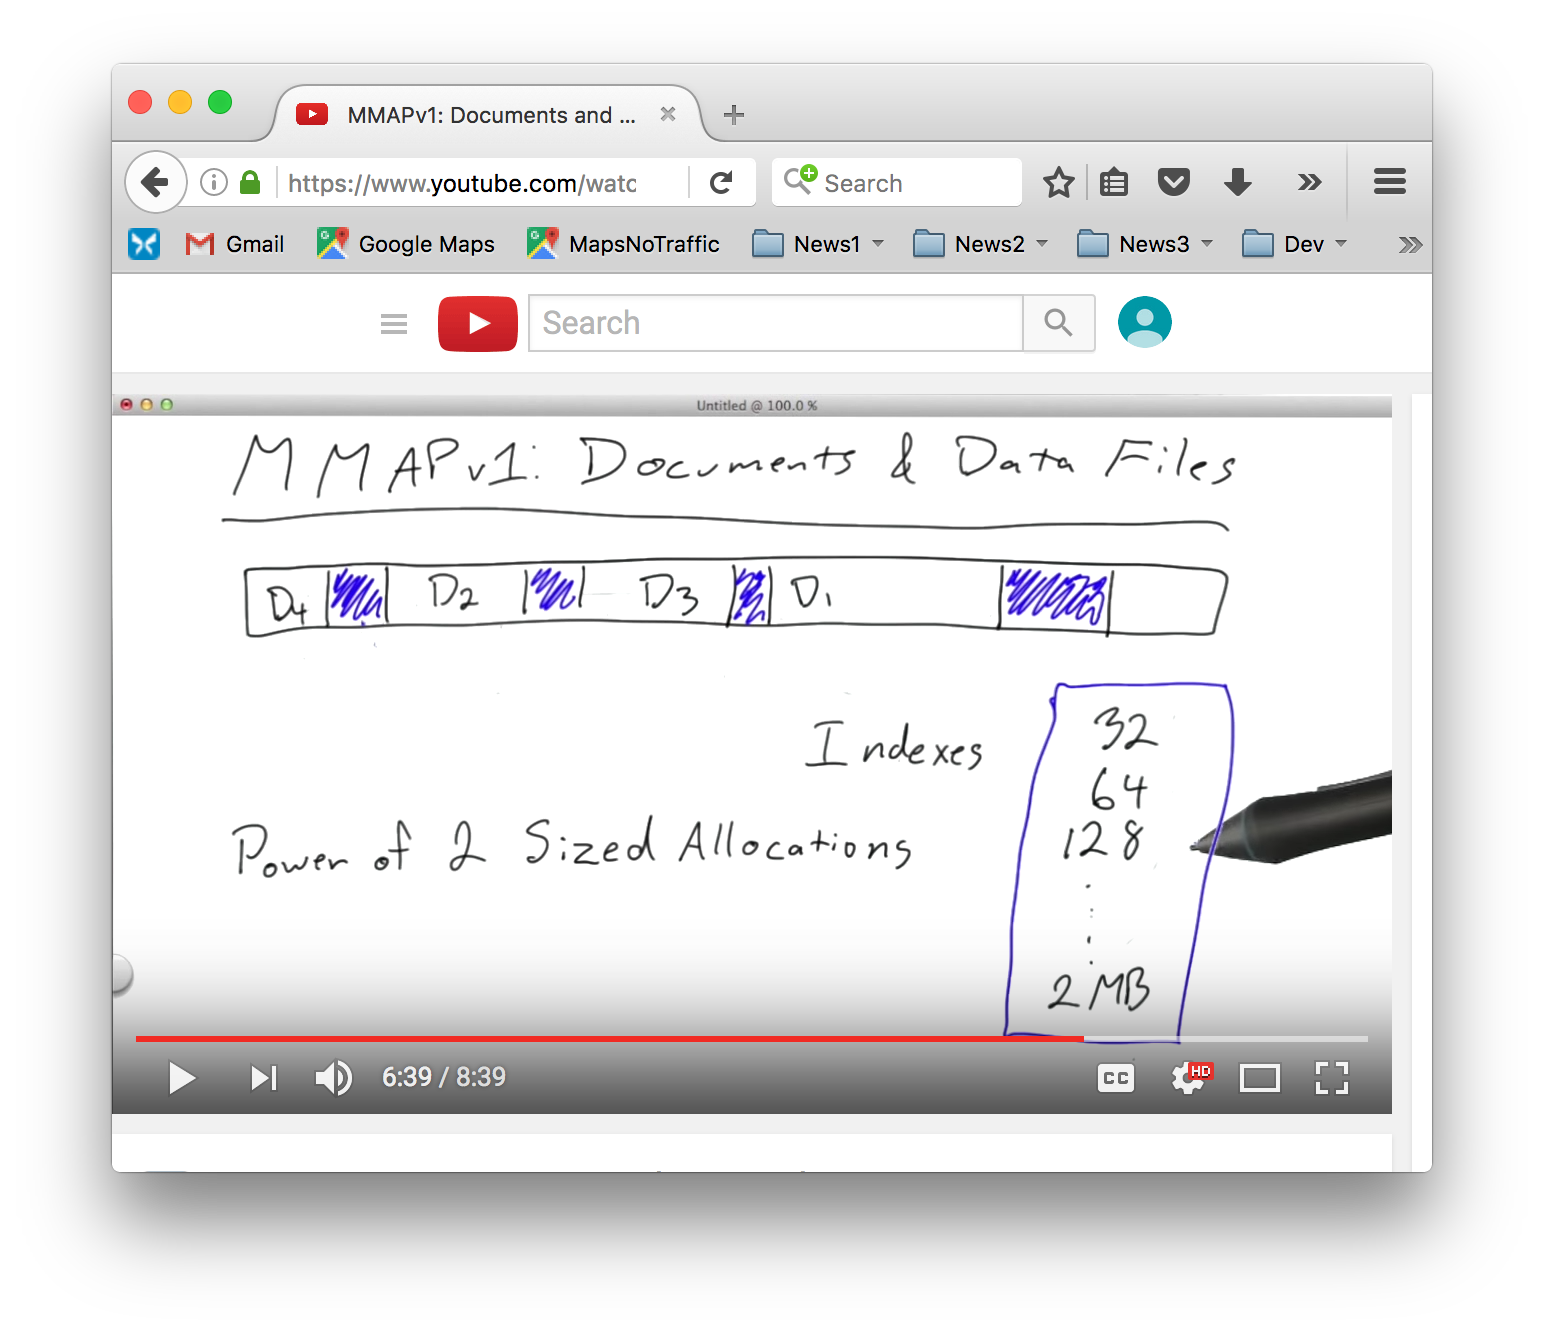 MMAPv1: Documents and ...
https://www.youtube.com/watc
Search
Gmail
Google Maps
MapsNoTraffic
News1
News2
News3
Dev
Search
Untitled @ 100.0 %
MMAPv1: Documents & Data Files
D4 D2 D3 D1
32
Indexes
64
Power of 2 Sized Allocations
128
2 MB
6:39 / 8:39
CC
HD